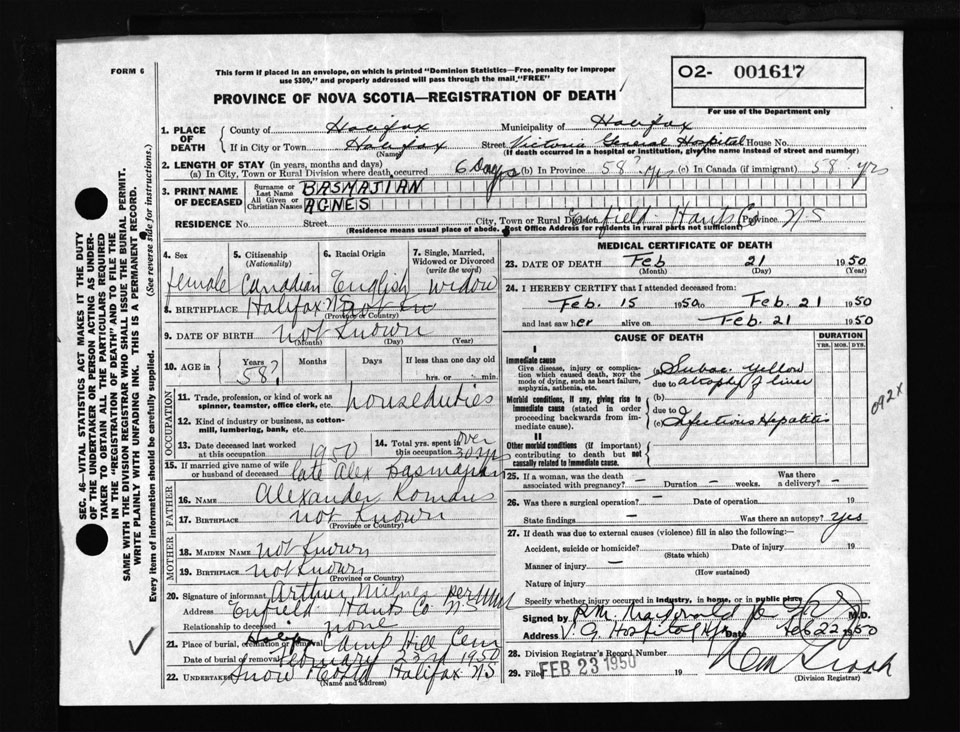 FORM 6
This form if placed in an envelope, on which is printed "Dominion Statistics—Free, penalty for improper
use $300," and properly addressed will pass through the mail, "FREE"
O2- 001617
For use of the Department only
PROVINCE OF NOVA SCOTIA—REGISTRATION OF DEATH
1. PLACE OF DEATH
County of Halifax Municipality of Halifax
If in City or Town Halifax (Name) Street Victoria General Hospital House No.
(If death occurred in a hospital or institution, give the name instead of street and number)
2. LENGTH OF STAY (in years, months and days)
(a) In City, Town or Rural Division where death occurred 6 Days (b) In Province 58? yrs (c) In Canada (if immigrant) 58? yrs
3. PRINT NAME OF DECEASED
Surname or Last Name BASMAJIAN
All Given or Christian Names AGNES
RESIDENCE No. Street City, Town or Rural Division Enfield Hants Co Province NS
(Residence means usual place of abode. Post Office Address for residents in rural parts not sufficient)
4. Sex 5. Citizenship (Nationality) 6. Racial Origin 7. Single, Married, Widowed or Divorced (write the word)
female Canadian English widow
8. BIRTHPLACE Halifax NS
(Province or Country)
9. DATE OF BIRTH not Known
(Month) (Day) (Year)
10. AGE in Years Months Days If less than one day old
58? hrs. or min.
OCCUPATION
11. Trade, profession, or kind of work as spinner, teamster, office clerk, etc. houseduties
12. Kind of industry or business, as cotton-mill, lumbering, bank, etc.
13. Date deceased last worked at this occupation 1950 14. Total yrs. spent in this occupation over 30 yrs
15. If married give name of wife or husband of deceased late Alex Basmajian
FATHER
16. NAME Alexander Romans
17. BIRTHPLACE not Known
(Province or Country)
MOTHER
18. MAIDEN NAME not Known
19. BIRTHPLACE not Known
(Province or Country)
20. Signature of informant Arthur Milnes per
Address Enfield Hants Co NS
Relationship to deceased none
21. Place of burial, cremation or removal Halifax Camp Hill Cem
Date of burial or removal February 23rd 1950
22. UNDERTAKER Snow Halifax NS
(Name and address)
MEDICAL CERTIFICATE OF DEATH
23. DATE OF DEATH Feb 21 1950
(Month) (Day) (Year)
24. I HEREBY CERTIFY that I attended deceased from:
Feb. 15 1950 to Feb. 21 1950
and last saw her alive on Feb. 21 1950
CAUSE OF DEATH DURATION
YRS. MOS. DYS.
I
Immediate cause
Give disease, injury or complication which caused death, not the mode of dying, such as heart failure, asphyxia, asthenia, etc.
(a) Subac. yellow
due to atrophy of liver
Morbid conditions, if any, giving rise to immediate cause (stated in order proceeding backwards from immediate cause).
(b)
due to
(c) Infectious Hepatitis
092X
II
Other morbid conditions (if important) contributing to death but not causally related to immediate cause.
25. If a woman, was the death associated with pregnancy? — Duration — weeks. Was there a delivery? —
26. Was there a surgical operation? — Date of operation 19
State findings — Was there an autopsy? yes
27. If death was due to external causes (violence) fill in also the following:
Accident, suicide or homicide? Date of injury 19
(State which)
Manner of injury —
(How sustained)
Nature of injury
Specify whether injury occurred in industry, in home, or in public place
Signed by R.M. MacDonald M.D.
Address V. G. Hospital Hfx Date Feb 22 1950
28. Division Registrar's Record Number
29. Filed FEB 23 1950 19
(Division Registrar)
SEC. 46—VITAL STATISTICS ACT MAKES IT THE DUTY OF THE UNDERTAKER OR PERSON ACTING AS UNDERTAKER TO OBTAIN ALL THE PARTICULARS REQUIRED IN THE "REGISTRATION OF DEATH" AND TO FILE THE SAME WITH THE DIVISION REGISTRAR WHO SHALL ISSUE THE BURIAL PERMIT.
WRITE PLAINLY WITH UNFADING INK. THIS IS A PERMANENT RECORD.
Every item of information should be carefully supplied. (See reverse side for instructions.)